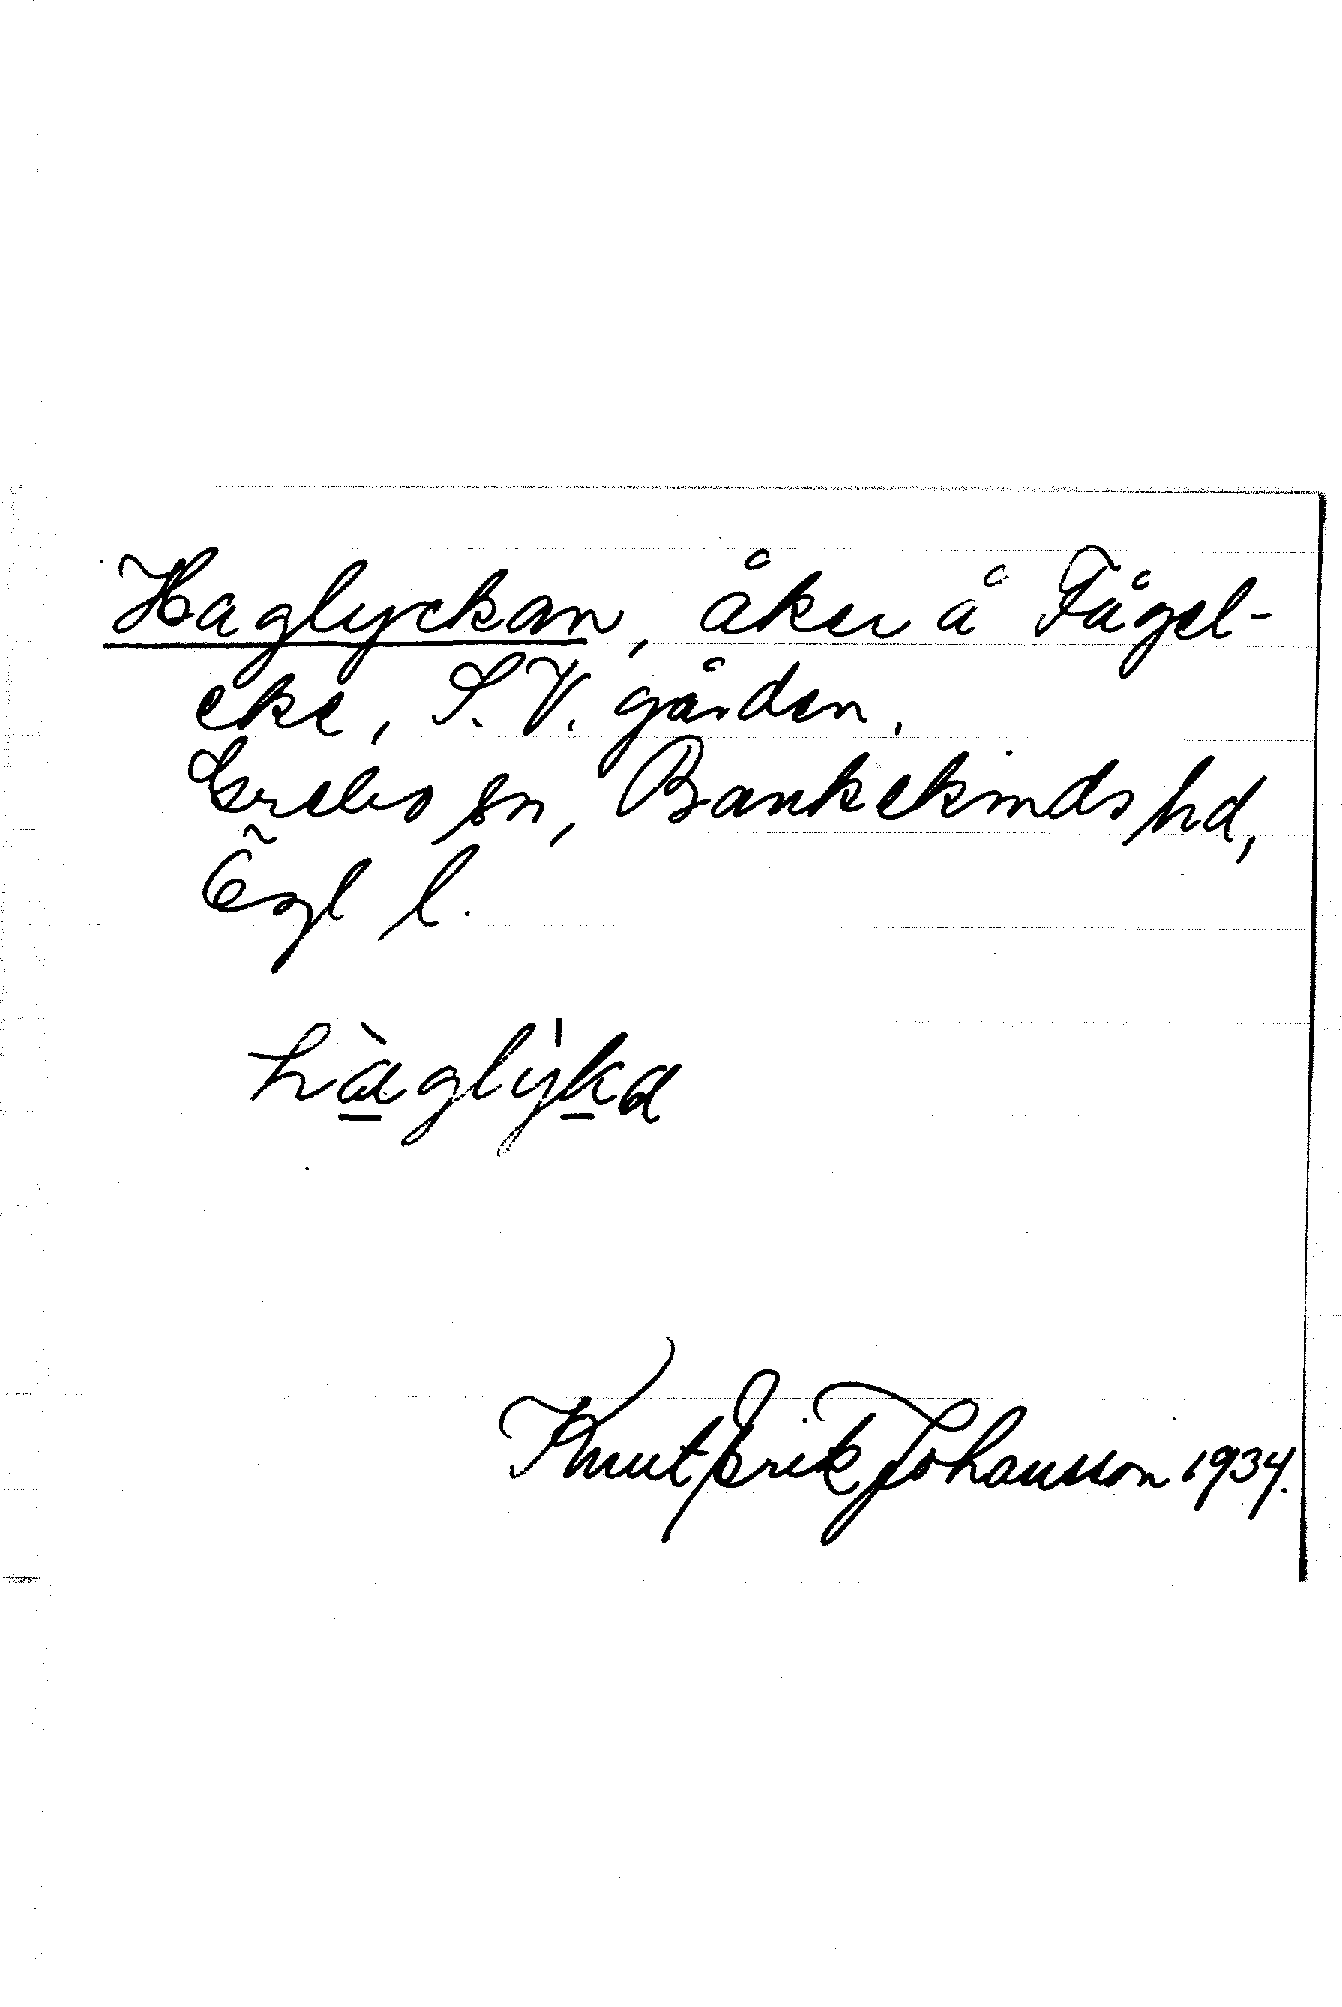 Haglyckan, åker å Fågel-
eke, S.V. gården.
Grebo sn, Bankekinds hd,
Ögl l.
hàglýka
Knut Erik Johansson 1934.